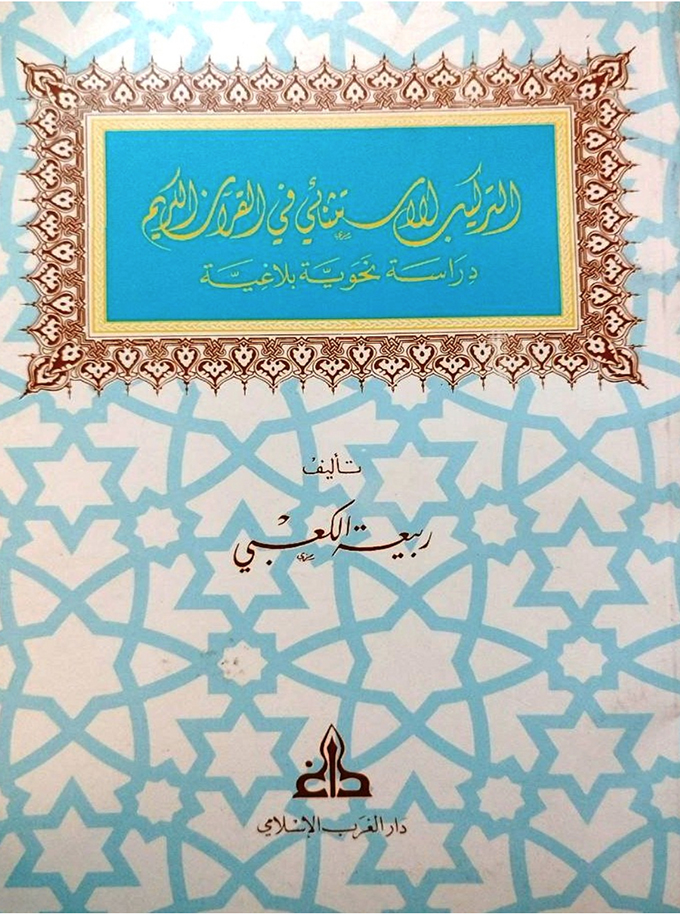 التركيب الاستثنائي في القرآن الكريم
دِرَاسَة نَحَويَّة بَلاغيَّة
تأليف
ربيعة الكعبي
دار الغرب الإسلامي